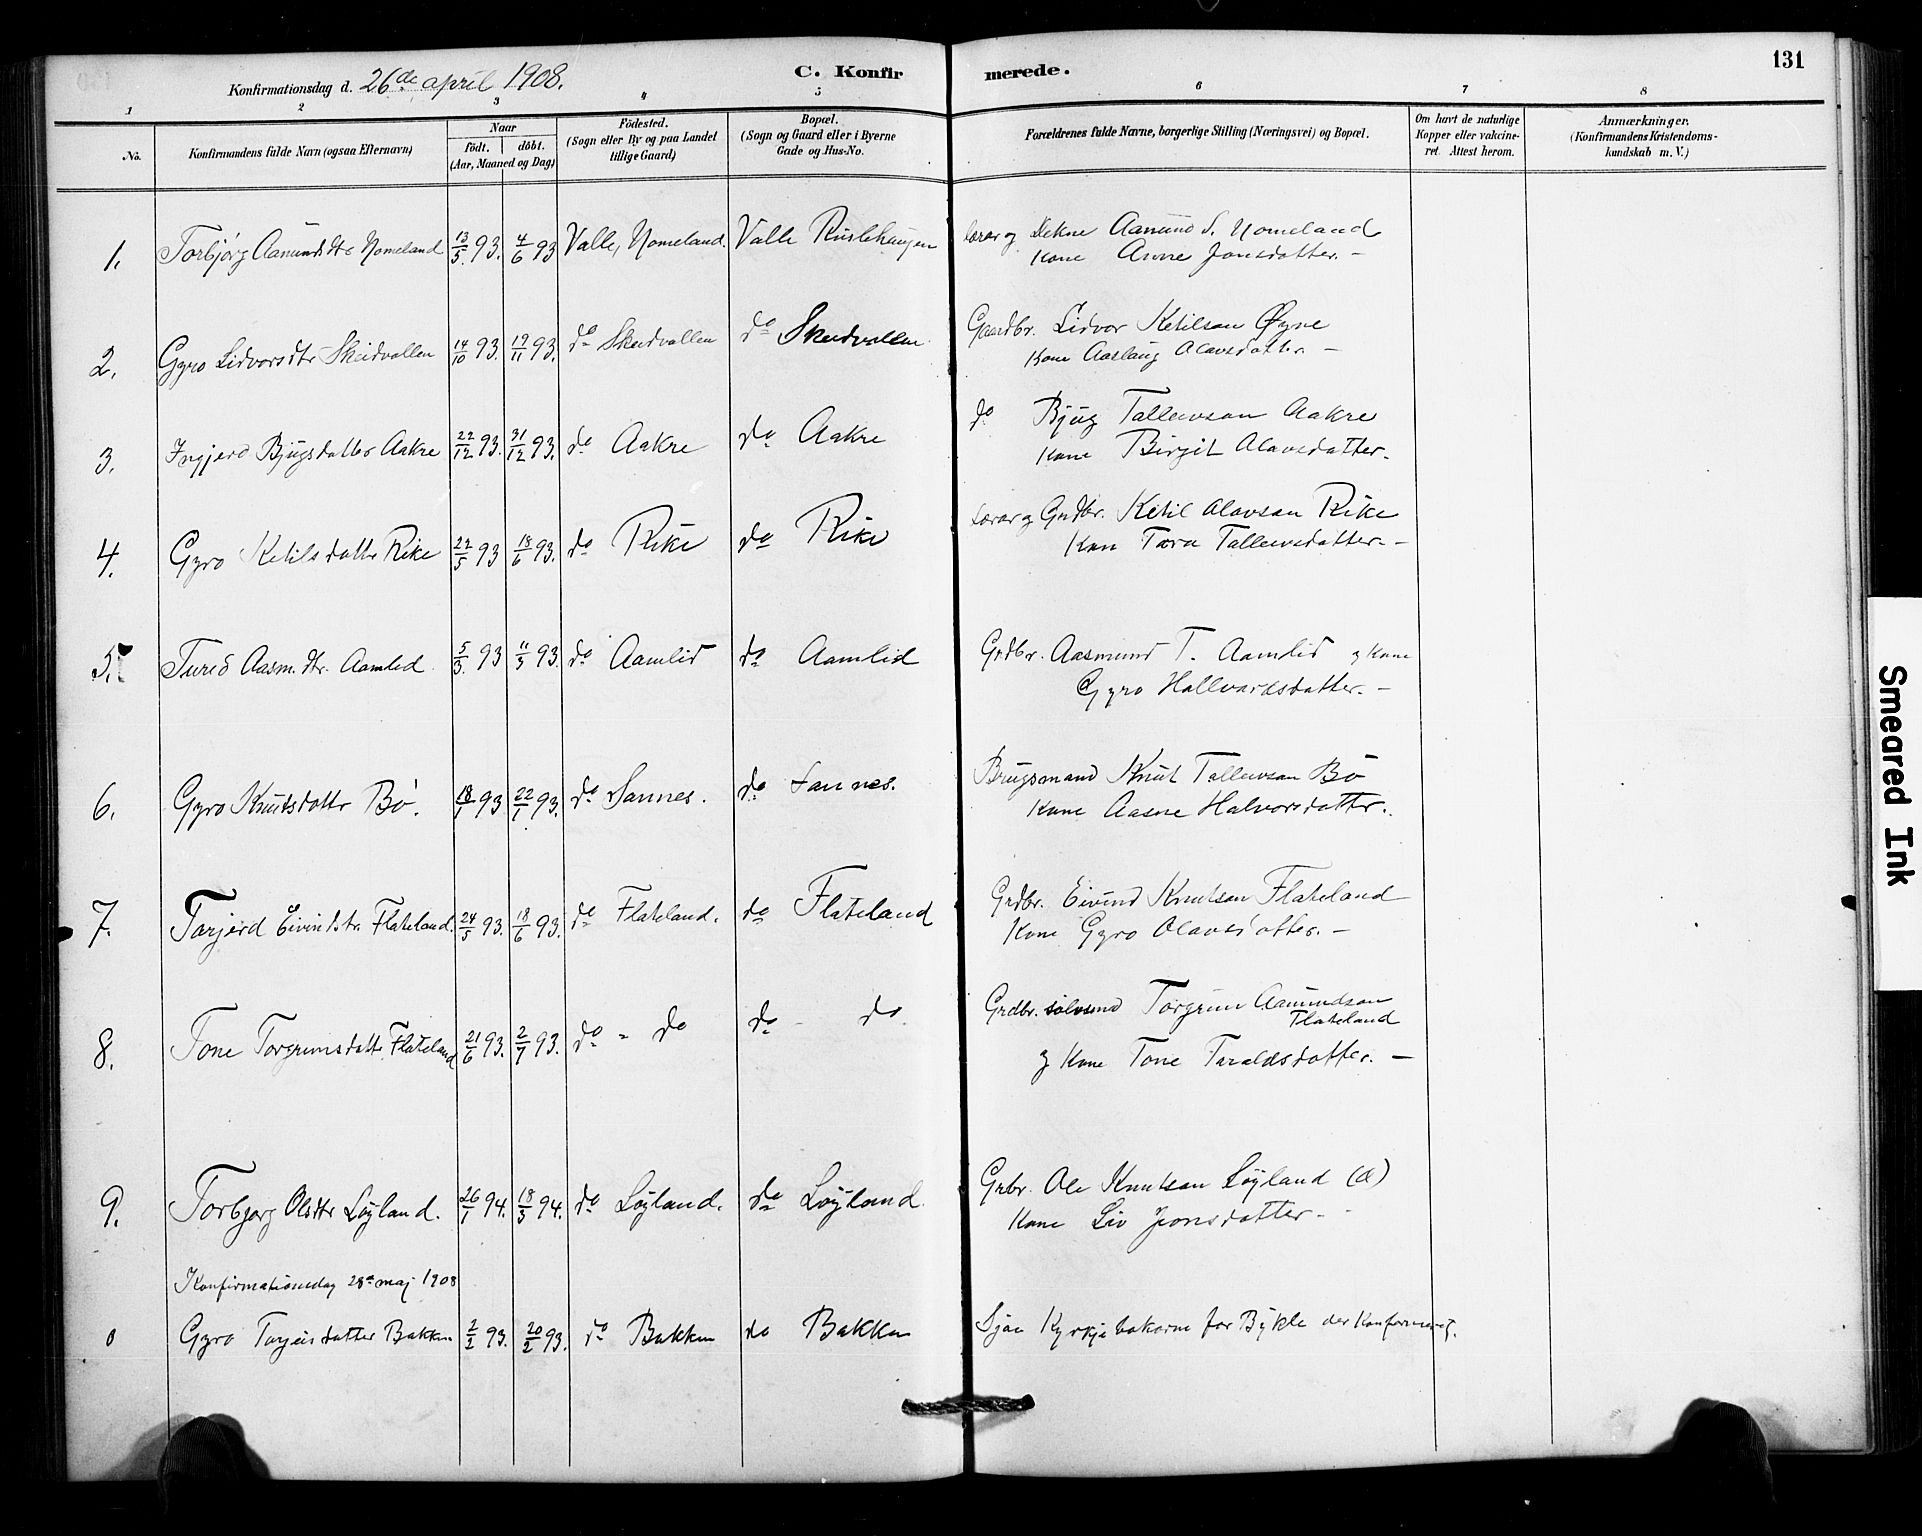 131
Konfirmationsdag d. 26de april 1908.
C. Konfirmerede.
1 2 3 4 5 6 7 8
No.
Konfirmandens fulde Navn (ogsaa Efternavn)
Naar
født. døbt.
(Aar, Maaned og Dag)
Fødested.
(Sogn eller By og paa Landet
tillige Gaard)
Bopæl.
(Sogn og Gaard eller i Byerne
Gade og Hus-No.
Forældrenes fulde Navne, borgerlige Stilling (Næringsvei) og Bopæl.
Om havt de naturlige
Kopper eller vakcine-
ret. Attest herom.
Anmærkninger.
(Konfirmandens Kristendoms-
kundskab m. V.)
1. Torbjörg Aanunds dtr Nomeland 13/5 93. 4/6 93 Valle, Nomeland. Valle Rustehaugen Lærar og Dekne Aanund S. Nomeland
Kone Anne Jonsdatter. –
2. Gyro Lidvorsdtr Skeidvollen 14/10 93. 19/11 93. do Skeidvollen do Skeidvollen Gaardbr. Lidvor Ketilson Øyne
Kone Aaslaug Olavsdatter –
3. Ingjerd Bjugsdatter Aakre 22/12 93. 31/12 93. do Aakre do Aakre do Bjug Talleivson Aakre
Kone Birgit Olavsdatter.
4. Gyro Ketilsdattr Rike 22/5 93 18/6 93. do Rike do Rike Lærar og Grdbr. Ketil Olavson Rike
Kone Tora Talleivsdatter. –
5. Turid Aasm. dtr. Aamlid 5/3. 93 11/3 93. do Aamlid do Aamlid Grdbr. Aasmund T. Aamlid og Kone
Gyro Hallvardsdatter. –
6. Gyro Knutsdattr Bø. 18/1 93 22/1 93. do Sannes. do Sannes. Brugsmand Knut Talleivson Bø
Kone Aasne Halvorsdatter.
7. Torjerd Eivindsdtr. Flateland. 24/5 93. 18/6 93. do Flateland. do Flateland Grdbr. Eivind Knutson Flateland
Kone Gyro Olavsdotter. –
8. Tone Torgrimsdattr Flateland 21/6 93. 2/7 93. do - do do - do Grdbr. sølvsmd Torgrim Aanundson
Flateland
og Kone Tone Taraldsdotter. –
9. Torbjorg Olsdtr Løyland. 26/1 94. 18/3 94. do Løyland. do Løyland. Grbr. Ole Knutson Løyland (d)
Kone Liv Jonsdotter -
Konfirmationsdag 28de maj 1908
0 Gyro Torjeisdatter Bakken 2/2 93. 20/2 93. do Bakken do Bakken Sjaa Kyrkjebokorne for Bykle der Konfirmeret.
Smeared Ink